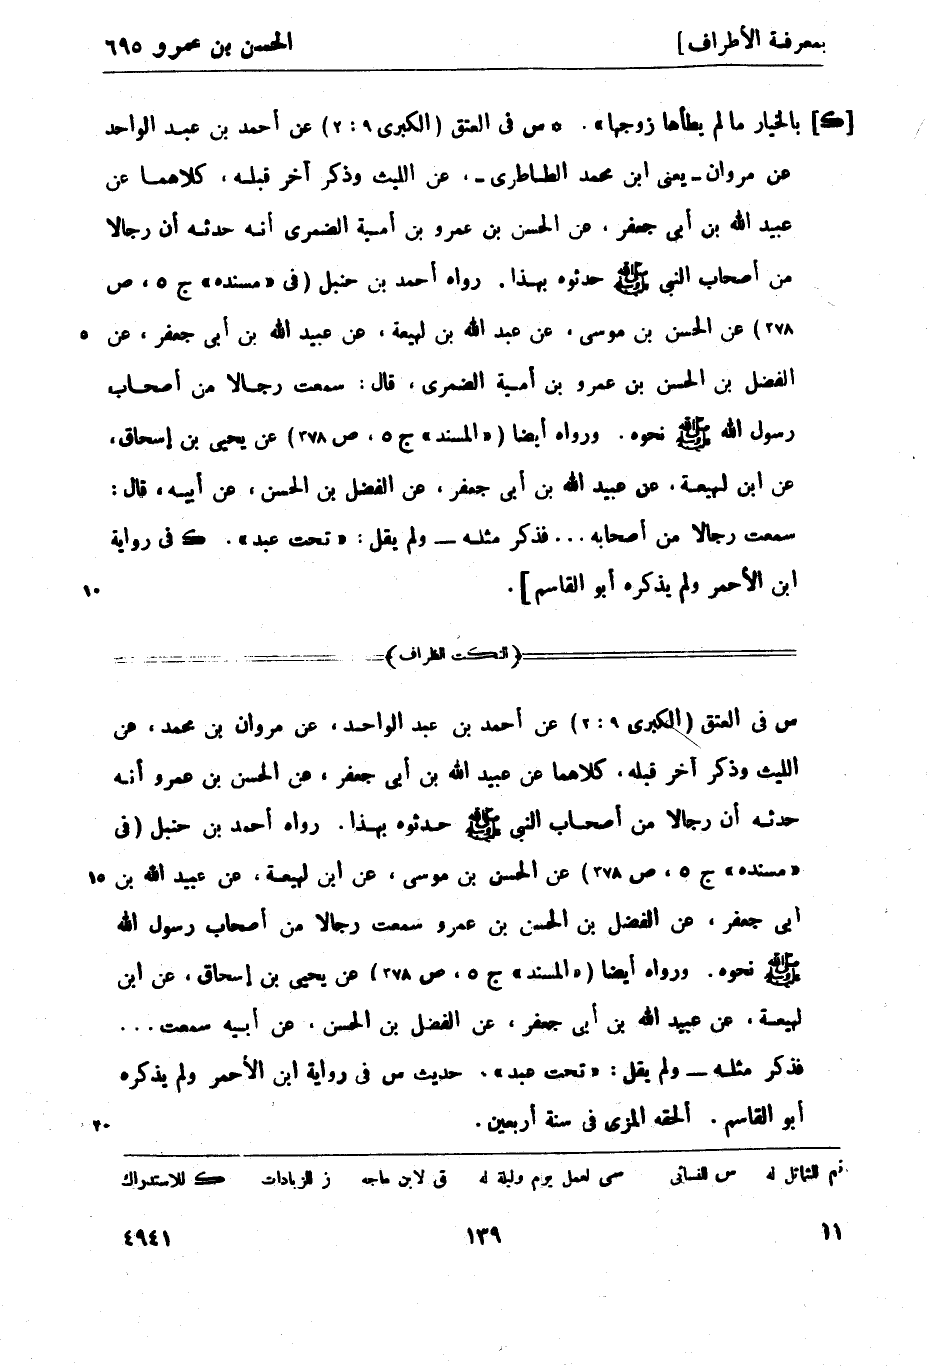 بمعرفة الأطراف]
الحسن بن عمرو ٦٩٥
[ك] بالخيار مالم يطأها زوجها». ٥ س فى العتق (الكبرى ٩ : ٢) عن أحمد بن عبد الواحد
عن مروان ـ يعنى ابن محمد الطاطرى ـ، عن الليث وذكر آخر قبله، كلاهما عن
عبيد الله بن أبي جعفر، عن الحسن بن عمرو بن أمية الضمرى أنه حدثه أن رجالا
من أصحاب النبي ﷺ حدثوه بهذا. رواه أحمد بن حنبل (فى «مسنده» ج ٥، ص
٣٧٨) عن الحسن بن موسى، عن عبد الله بن لهيعة، عن عبيد الله بن أبي جعفر، عن ٥
الفضل بن الحسن بن عمرو بن أمية الضمرى، قال: سمعت رجالا من أصحاب
رسول الله ﷺ نحوه. ورواه أيضا («المسند» ج ٥، ص ٣٧٨) عن يحيى بن إسحاق،
عن ابن لهيعة، عن عبيد الله بن أبي جعفر، عن الفضل بن الحسن، عن أبيه، قال:
سمعت رجالا من أصحابه... فذكر مثله — ولم يقل: «تحت عبد». ك فى رواية
ابن الأحمر ولم يذكره أبو القاسم]. ١٠
(النكت الظراف)
س فى العتق (الكبرى ٩ : ٢) عن أحمد بن عبد الواحد، عن مروان بن محمد، عن
الليث وذكر آخر قبله، كلاهما عن عبيد الله بن أبي جعفر، عن الحسن بن عمرو أنه
حدثه أن رجالا من أصحاب النبي ﷺ حدثوه بهذا. رواه أحمد بن حنبل (فى
«مسنده» ج ٥، ص ٣٧٨) عن الحسن بن موسى، عن ابن لهيعة، عن عبيد الله بن ١٥
أبي جعفر، عن الفضل بن الحسن بن عمرو سمعت رجالا من أصحاب رسول الله
ﷺ نحوه. ورواه أيضا («المسند» ج ٥، ص ٣٧٨) عن يحيى بن إسحاق، عن ابن
لهيعة، عن عبيد الله بن أبي جعفر، عن الفضل بن الحسن، عن أبيه سمعت...
فذكر مثله — ولم يقل: «تحت عبد». حديث س فى رواية ابن الأحمر ولم يذكره
أبو القاسم. ألحقه المزى فى سنة أربعين. ٢٠
تم للشمائل له س للنسائى سى لعمل يوم وليلة له ق لابن ماجه ز للزيادات ك للاستدراك
١١ ١٣٩ ٤٩٤١